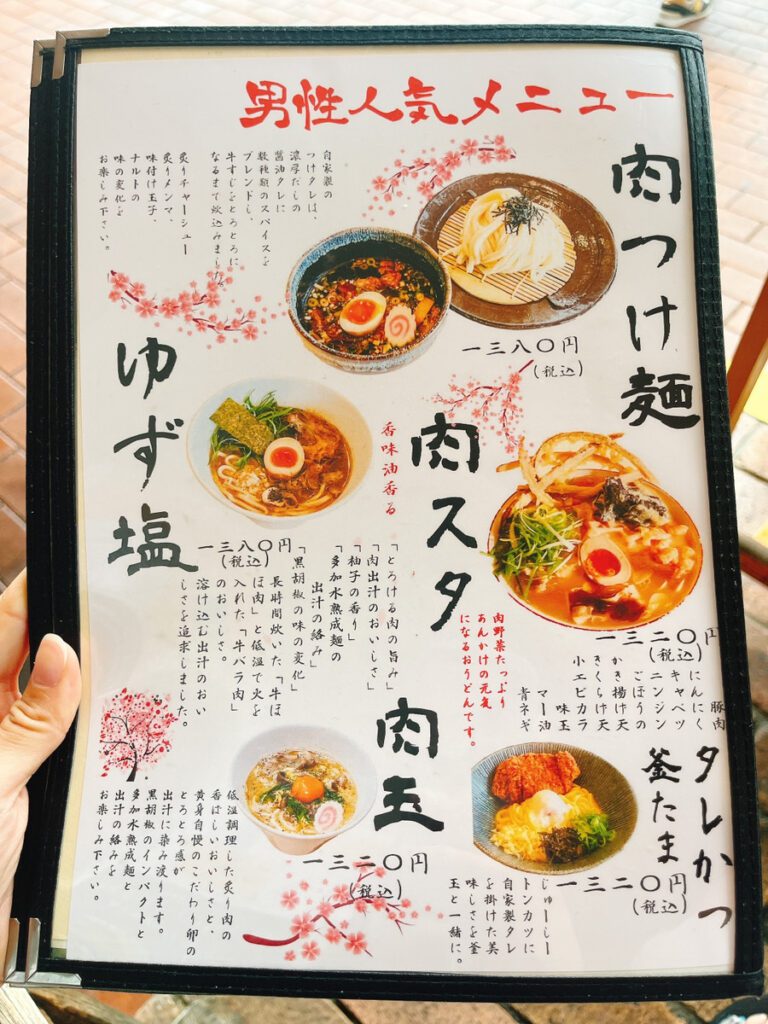 男性人気メニュー
肉つけ麺
一三八〇円
(税込)
自家製の
つけタレは、
濃厚だしの
醤油タレに
数種類のスパイスを
ブレンドし、
牛すじをとろとろに
なるまで炊込みました。
炙りチャーシュー
炙りメンマ、
味付け玉子、
ナルトの
味の変化を
お楽しみ下さい。
肉スタ
一三二〇円
(税込)
肉野菜たっぷり
あんかけの元気
になるおうどんです。
豚肉
にんにく
キャベツ
ニンジン
ごぼうの
かき揚げ天
きくらげ天
小エビカラ
味玉
マー油
青ネギ
ゆず塩
香味油香る
一三八〇円
(税込)
「とろける肉の旨み」
「肉出汁のおいしさ」
「柚子の香り」
「多加水熟成麺の
出汁の絡み」
「黒胡椒の味の変化」
長時間炊いた「牛ほ
ほ肉」と低温で火を
入れた「牛バラ肉」
のおいしさ。
溶け込む出汁のおい
しさを追求しました。
タレかつ
釜たま
一三二〇円
(税込)
じゅーしー
トンカツに
自家製タレ
を掛けた美
味しさを釜
玉と一緒に。
肉玉
一三二〇円
(税込)
低温調理した炙り肉の
香ばしいおいしさと、
黄身自慢のこだわり卵の
とろとろ感が
出汁に染み渡ります。
黒胡椒のインパクトと
多加水熟成麺と
出汁の絡みを
お楽しみ下さい。